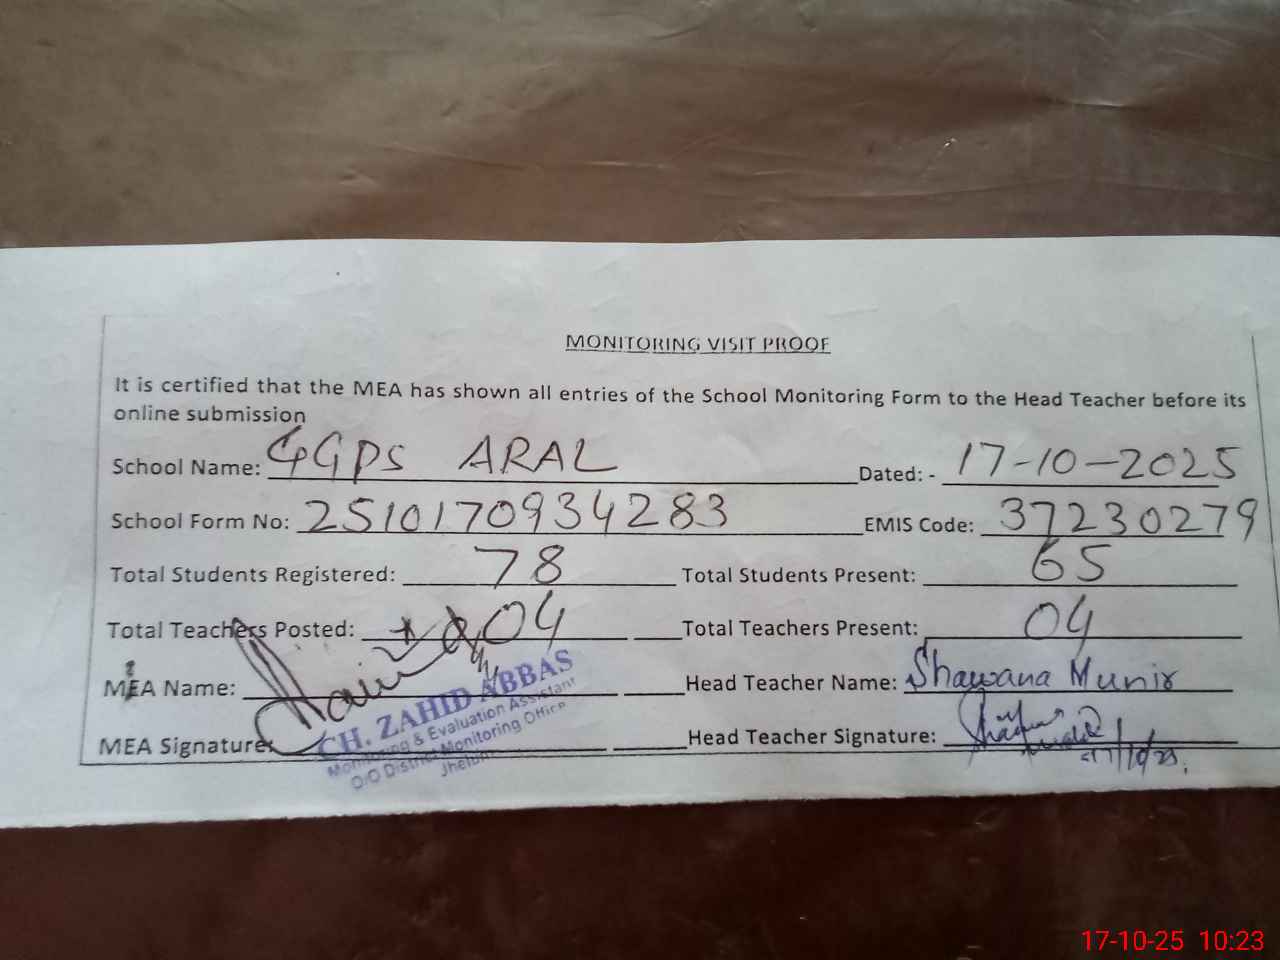 MONITORING VISIT PROOF
It is certified that the MEA has shown all entries of the School Monitoring Form to the Head Teacher before its
online submission
School Name: GGPS ARAL Dated: - 17-10-2025
School Form No: 2510170934283 EMIS Code: 37230279
Total Students Registered: 78 Total Students Present: 65
Total Teachers Posted: 04 Total Teachers Present: 04
MEA Name: Head Teacher Name: Shawana Munir
MEA Signature: Head Teacher Signature:
17/10/25.
CH. ZAHID ABBAS
Monitoring & Evaluation Assistant
O/O District Monitoring Office
Jhelum
17-10-25 10:23